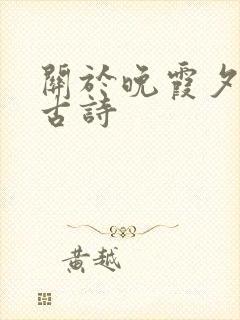 關於晚霞夕
古詩
黃越